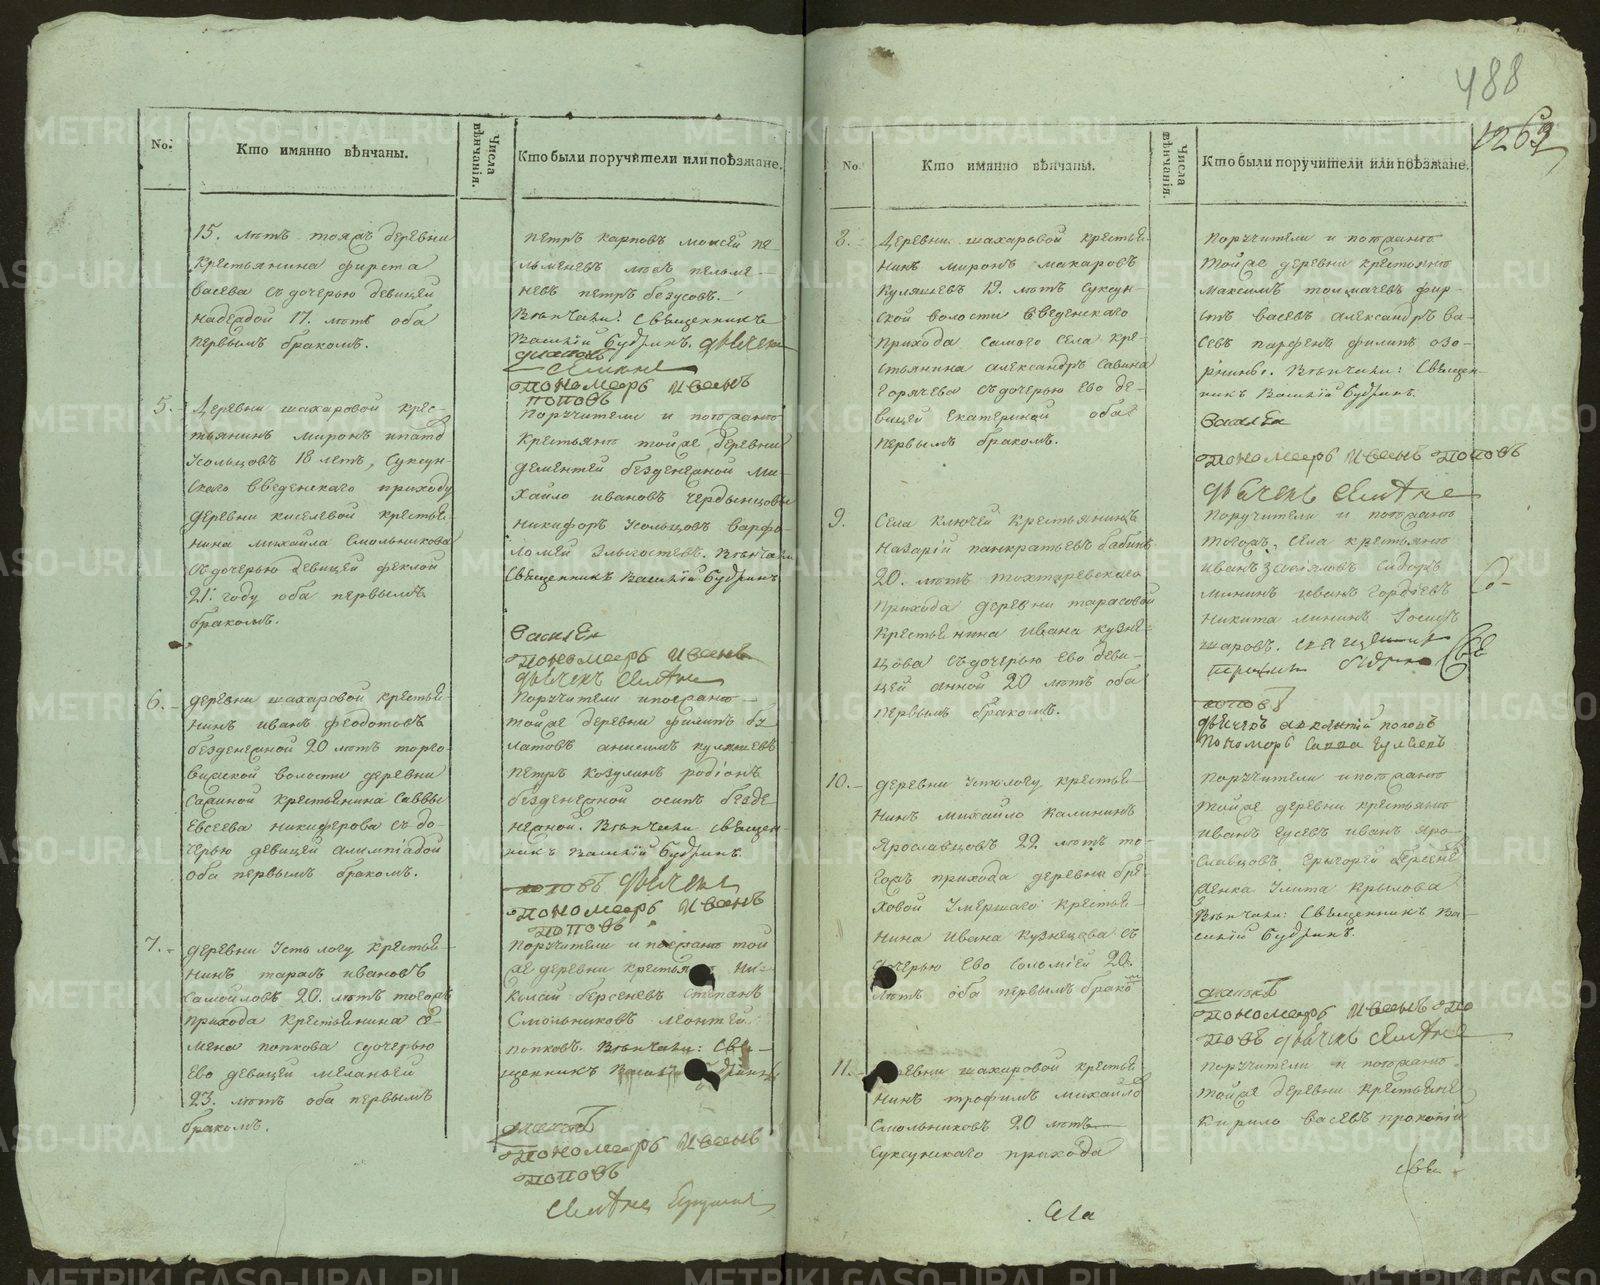 488
1263
No.
Кто имянно вѣнчаны.
Числа вѣнчанія.
Кто были поручители или поѣзжане.
15. лѣтъ тояжъ деревни
крестьянина фирста
васева съ дочерью девицей
надеждой 17. лѣтъ оба
первымъ бракомъ.
петръ карповъ моисей пе-
льменевъ пельме-
невъ петръ безусовъ.
Вѣнчали: Священникъ
Василій Будринъ. дьячекъ
пономарь Иванъ
поповъ
5.
Деревни шахаровой крес-
тьянинъ миронъ
Усольцовъ 18 летъ, Суксун-
скаго введенскаго приходу
деревни киселевой крестья-
нина михайла Смольникова
съ дочерью девицей феклой
21. году оба первымъ
бракомъ.
Поручители и поѣзжанѣ
крестьянѣ тойже деревни
дементей безденежной ми-
хайло ивановъ чердынцовъ
никифоръ Усольцовъ варфо-
ломей Вѣнчали
Священникъ Василій Будринъ
Василей
пономарь Иванъ
дьячекъ
6.
деревни шахаровой крестья-
нинъ иванъ федотовъ
безденежной 20 лѣтъ торго-
вижской волости деревни
крестьянина Саввы
Евсеева никиферова съ до-
черью девицей алимпіадой
оба первымъ бракомъ.
Поручители и поезжанѣ
тойже деревни филипъ бу-
латовъ анисимъ куляшевъ
петръ козулинъ родіонъ
безденежной осипъ безде-
нежной. Вѣнчали священ-
никъ Василій Будринъ.
поповъ дьячекъ
пономарь Иванъ
поповъ
7.
деревни Усть логу крестья-
нинъ тарасъ ивановъ
самойловъ 20. лѣтъ тогожъ
прихода крестьянина се-
мена попкова сдочерью
ево девицей меланьей
23. лѣтъ оба первымъ
бракомъ.
Поручители и поезжанѣ той
же деревни крестьянѣ ни-
колай берсеневъ степанъ
Смольниковъ леонтей
попковъ. Вѣнчали: Свя-
щенникъ Василій Будринъ
пономарь Иванъ
поповъ
No.
Кто имянно вѣнчаны.
Числа вѣнчанія.
Кто были поручители или поѣзжане.
8.
Деревни шахаровой крестья-
нинъ миронъ макаровъ
Куляшевъ 19. лѣтъ Суксун-
ской волости введенскаго
прихода самого села кре-
стьянина александръ савина
Горячева съ дочерью ево де-
вицей екатериной оба
первымъ бракомъ.
Поручители и поѣзжанѣ
тойже деревни крестьянѣ
максимъ толмачевъ фир-
стъ васевъ александръ ва-
севъ парфенъ филипъ озо-
рнины. Вѣнчали: Священ-
никъ Василій Будринъ.
Василей
пономарь Иванъ поповъ
дьячекъ
9.
Села ключей крестьянинъ
назарій панкратьевъ бабинъ
20. лѣтъ тохтаревскаго
прихода деревни тарасовой
крестьянина ивана кузне-
цова съ дочерью ево деви-
цей анной 20 лѣтъ оба
первымъ бракомъ.
Поручители и поѣзжанѣ
тогожъ села крестьянѣ
иванъ сидоръ
мининъ иванъ гордѣевъ
никита мининъ
шаровъ. священникъ
будринъ
поповъ
дьячекъ поповъ
пономарь савва
10.
деревни Устьлогу крестья-
нинъ михайло калининъ
Ярославцовъ 22 лѣтъ то-
гожъ прихода деревни бре-
ховой Умершаго крестья-
нина ивана кузнецова съ
дочерью ево соломіей 20.
лѣтъ оба первымъ бракомъ
Поручители и поѣзжанѣ
тойже деревни крестьянѣ
иванъ гусевъ иванъ яро-
славцовъ григорей берсене
женка Улита крылова
Вѣнчали: Священникъ Ва-
силій Будринъ.
пономарь Иванъ по-
повъ дьячекъ
11.
деревни шахаровой крестья-
нинъ трофимъ михайло
Смольниковъ 20 лѣтъ
Суксунскаго прихода
Поручители и поѣзжанѣ
тойже деревни крестьянѣ
кирило васевъ прокопій
села